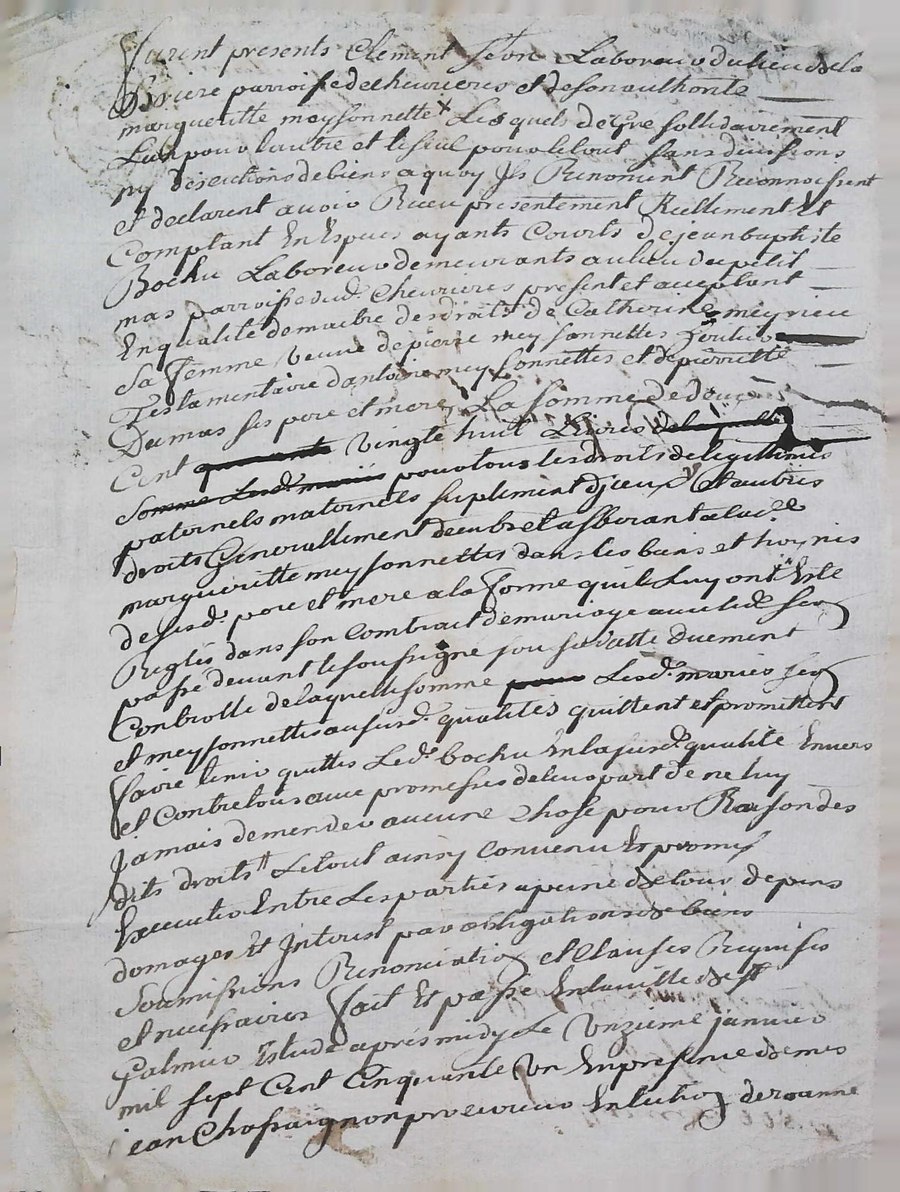 furent presents Clement Févre Laboureur du lieu de la
parroisse de chevrieres et de son authorité
margueritte meysonnette x Lesquels de gré sollidairement
L'un pour lautre et le seul pour le tout sans divisions
ny discutions de biens a quoy Ils Renoncent Reconnoissent
et declarent avoir Receu presentement Reellement Et
Comptant En Especes ayants Cours de jean baptiste
Bochu Laboureur demeurants au lieu du petit
mas parroisse dud. Chevrieres present et acceptant
En qualité de maitre des droits de Catherine meyrieu
sa femme veuve de pierre meysonnettes heritier
Testamentaire dantoine meysonnettes et de pierrette
Dumas ses pere et mere La somme de deux
Cent vingte huit Livres
somme Lesd. mariés pour tous les droits de legitimes
paternels maternels suplement d'jceux Et autres
droits Generallement deub et afferant a lad.
margueritte meysonnettes dans les biens et hoyries
de sesd. pere et mere a la forme quils Luy ont Esté
Reglés dans son Contrait de mariage avec led.
passé devant le soussigné sou sa datte duement
Controllé de laquelle somme Lesd. mariés
et meysonnettes aususd. qualités quittent et promettent
faire tenir quittes Led. bochu En lasusd. qualité Envers
et Contre tous avec promesses de leur part de ne luy
jamais demender aucune Chose pour Raison des
dits droits Le tout ainsy convenu Et promis
Executer Entre Les parties a peine de tous depens
domages Et Interest par obligations de biens
soumissions Renonciation et Clauses Requises
et necessaires fait Et passé En la ville de st
galmier Estude aprés midy Le unzieme janvier
mil sept Cent Cinquante un En presence de mes
jean Chassaignon procureur En Lection de roanne